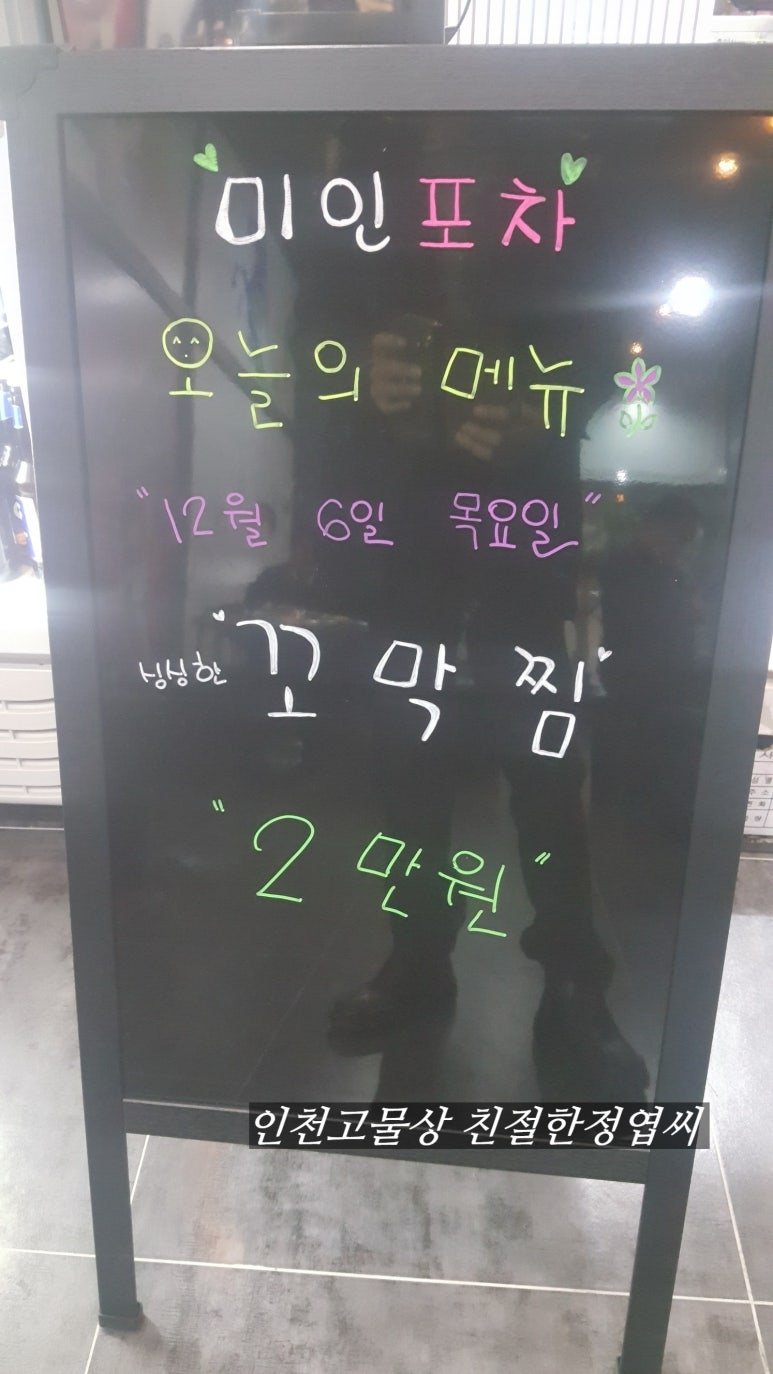 미인포차
오늘의 메뉴
"12월 6일 목요일"
싱싱한 꼬막찜
"2만원"
인천고물상 친절한정엽씨